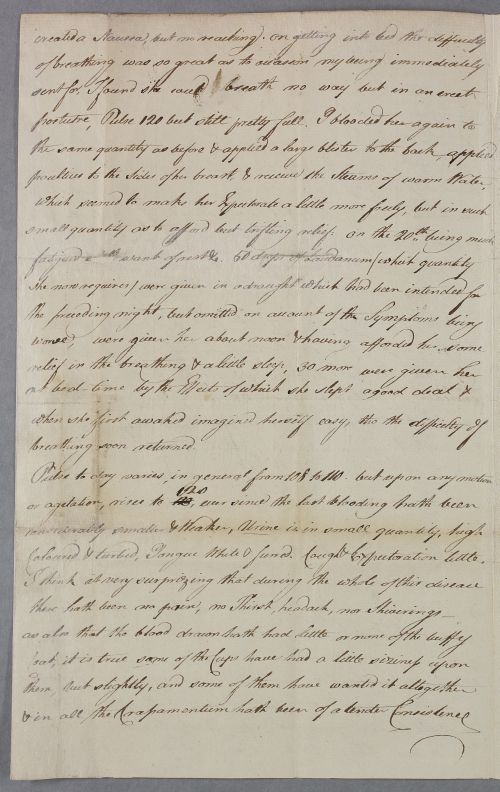 created a Nausea, but no reaching. on getting into bed the difficulty
of breathing was so great as to occasion my being immediately
sent for. I found she coud breath no way but in an erect
posture, Pulse 120 but still pretty full. I blooded her again to
the same quantity as before & applied a large blister to the back, applied
poultices to the Sides of her breast, & receive the Steams of warm Water,
which seemed to make her Expectorate a little more freely, but in such
small quantity as to afford but trifling relief. on the 20th being much
fatigued with want of rest &c. 60 drops of Laudanum (which quantity
she now requires) were given in a draught which had been intended for
the preceding night, but omitted on account of the Symptoms being
worse) were given her about noon & having afforded her some
relief in the breathing & a little sleep, 30 more were given her
at bed-time by the Effects of which she slept a good deal &
when she first awaked imagined herself easy, tho the difficulty of
breathing soon returned.
Pulse to day varies, in general from 108 to 110. but upon any motion
or agetation, rises to 120, ever since the last blooding hath been
considerably smaller & Weaker, Urine is in small quantity, high
Coloured & turbid, Tongue White & furred. Cough & Expectoration little.
I think it very surprizing that during the whole of this disease
there hath been no pain, no Thirst, headach, nor Shiverings
as also that the blood drawn hath had little or none of the buffy
Coat, it is true some of the Cups have had a little siziness upon
them, but slightly, and some of them have wanted it altogether
& in all the Crassamentum hath been of a tender Consistence